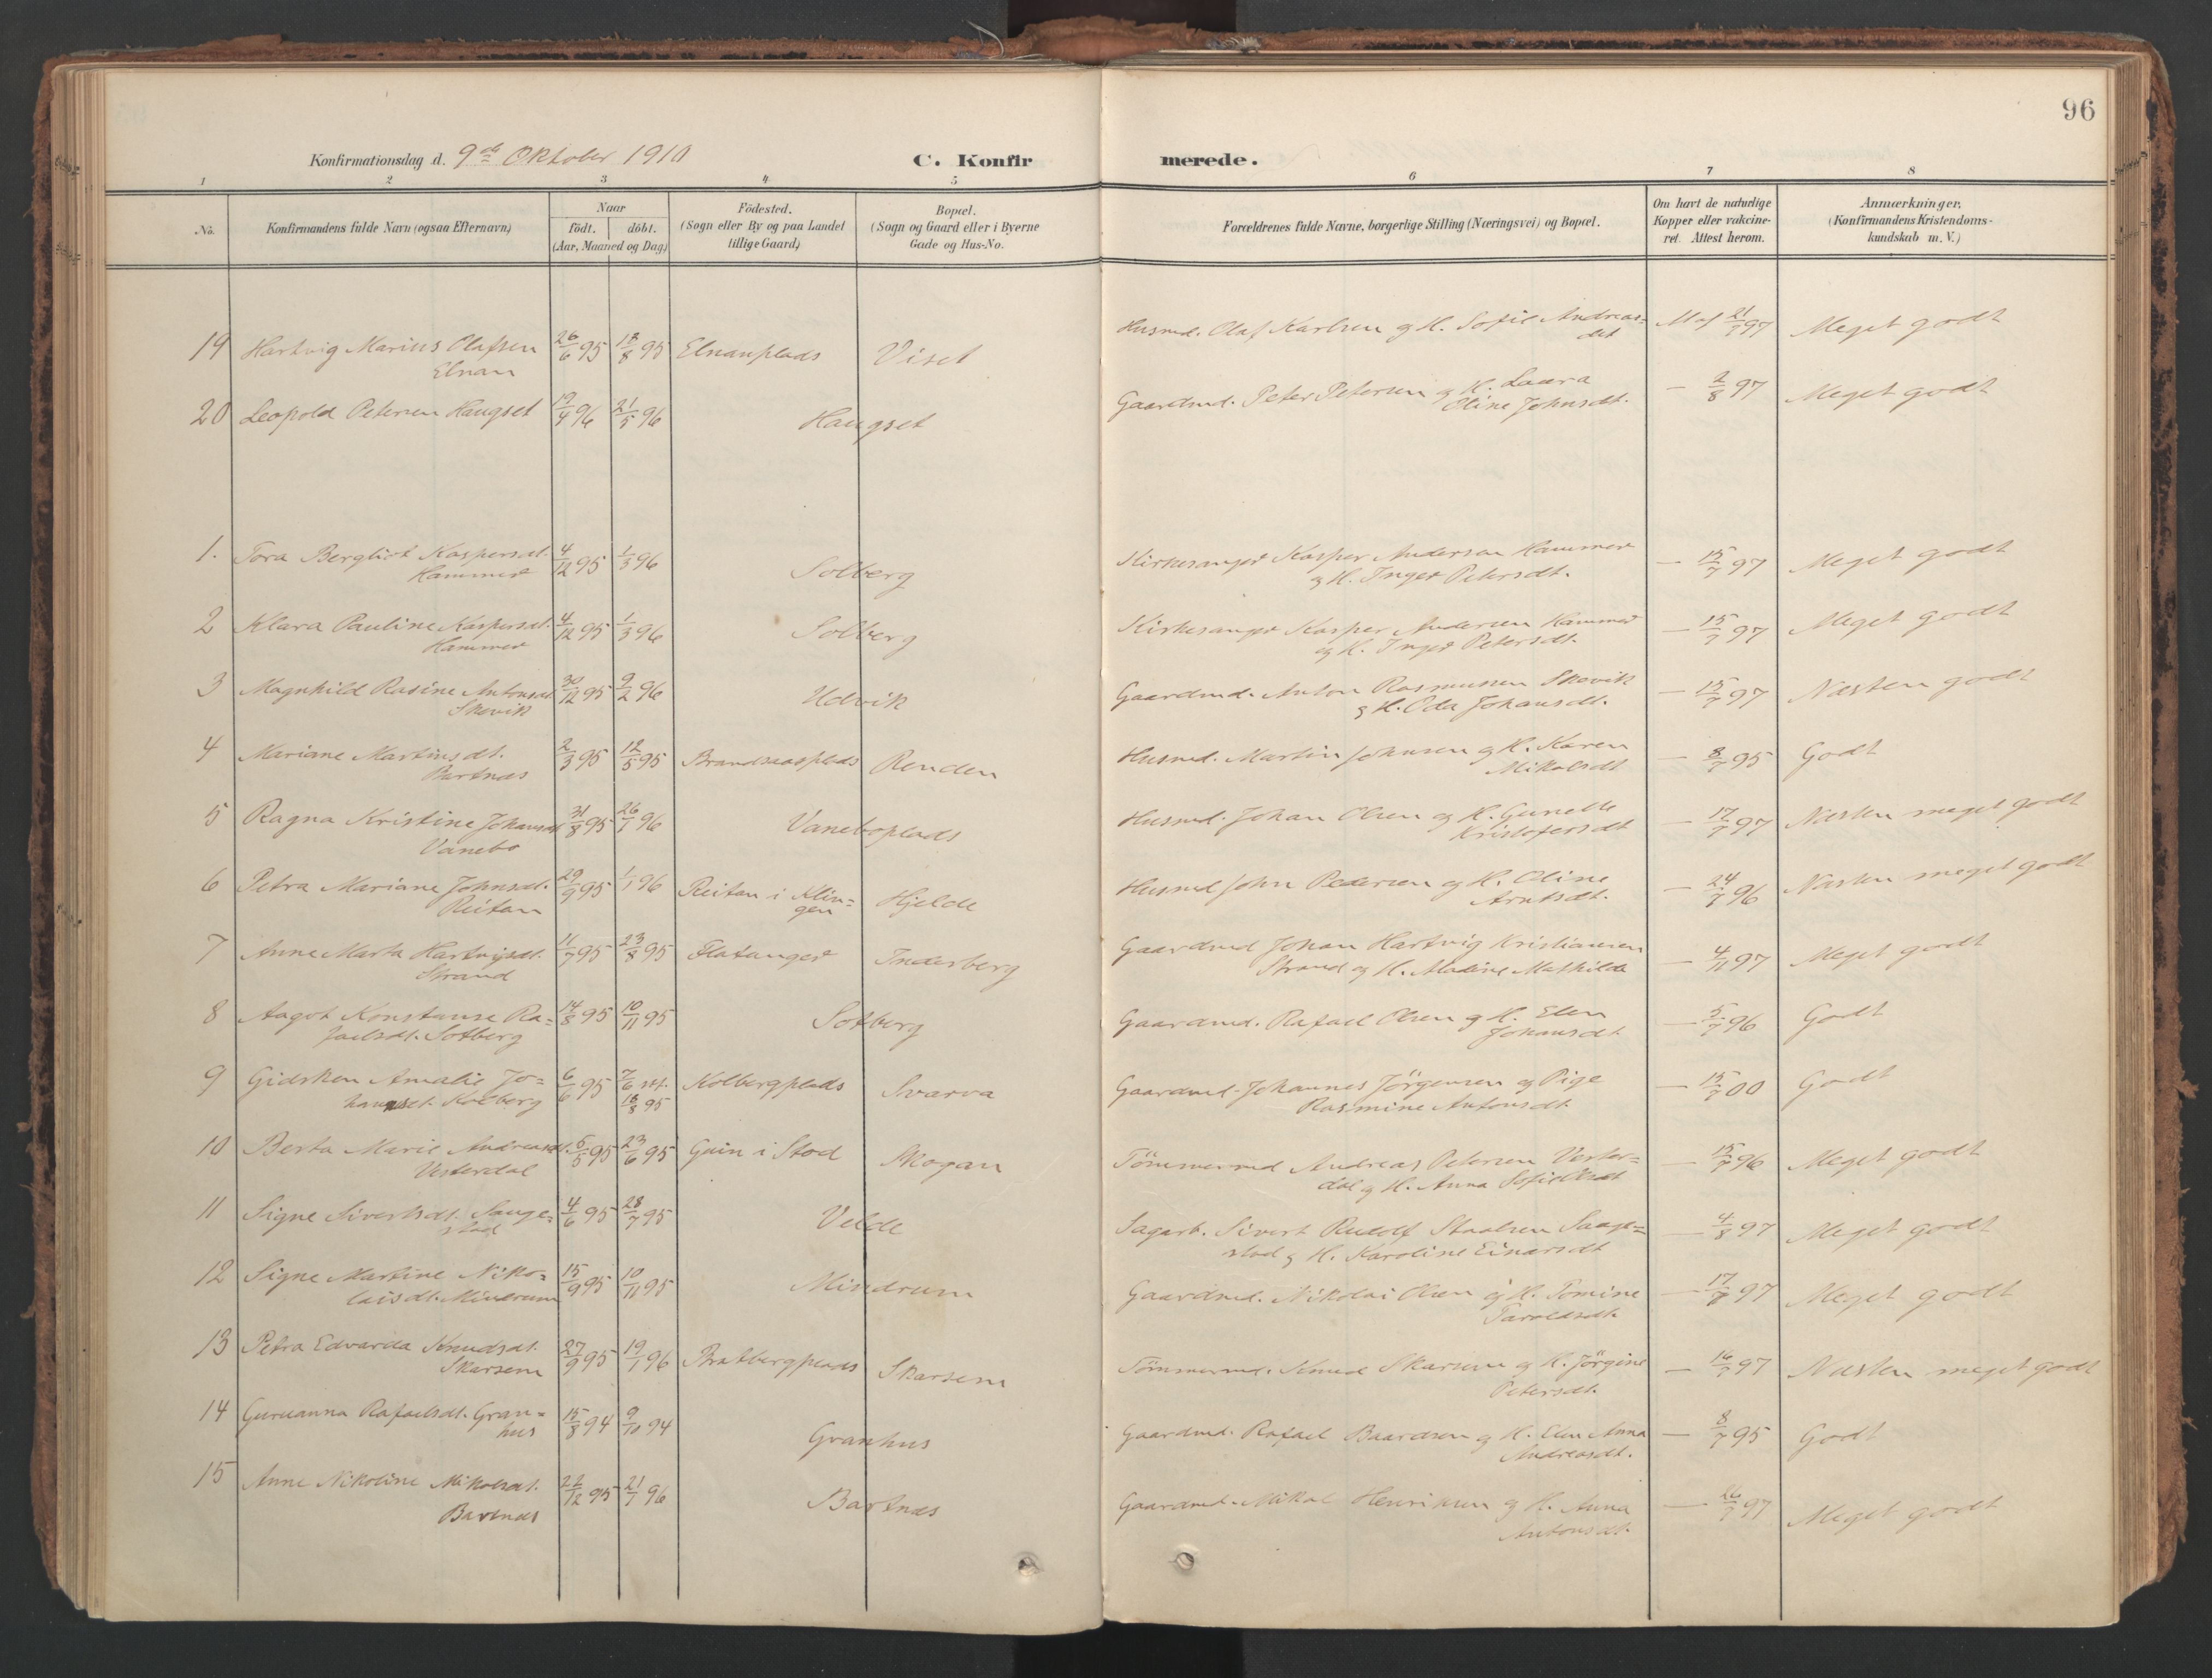 96
Konfirmationsdag d. 9de Oktober 1910 C. Konfir merede.
1 2 3 4 5 6 7 8
No. Konfirmandens fulde Navn (ogsaa Efternavn) Naar födt. döbt. (Aar, Maaned og Dag) Födested. (Sogn eller By og paa Landet tillige Gaard) Bopæl. (Sogn og Gaard eller i Byerne Gade og Hus-No. Forældrenes fulde Navne, borgerlige Stilling (Næringsvei) og Bopæl. Om havt de naturlige Kopper eller vakcineret. Attest herom. Anmærkninger. (Konfirmandens Kristendomskundskab m. V.)
19 Hartvig Marius Olafsen 26/6 95 18/8 95 Elnanplads Viset Husmd. Olaf Karlsen og H. Sofie Andreas= 21/7 97 Meget godt
Elnan dtr
20 Leopold Petersen Haugset 19/4 96 21/5 96 Haugset Gaardmd. Peter Petersen og H. Laura — 2/8 97 Meget godt
Oline Johnsdt.
1. Tora Bergliot Kaspersdt. 4/12 95 1/3 96 Solberg Kirkesanger Kasper Andersen Hammer — 15/7 97 Meget godt
Hammer og H. Inger Petersdt.
2 Klara Pauline Kaspersdt. 4/12 95 1/3 96 Solberg Kirkesanger Kasper Andersen Hammer — 15/7 97 Meget godt
Hammer og H. Inger Petersdt.
3 Magnhild Rasine Antonsdt. 30/12 95 9/2 96 Udvik Gaardmd. Anton Rasmussen Skevik — 15/7 97 Næsten godt
Skevik og H. Oda Johansdt.
4 Mariane Martinsdt. 2/3 95 12/5 95 Brandsaasplads Renden Husmd. Martin Johnsen og H. Karen — 8/7 95 Godt
Bartnes Mikalsdt
5 Ragna Kristine Johansdt 31/8 95 26/1 96 Vaneboplads Husmd. Johan Olsen og H. Gunelle — 17/7 97 Næsten meget godt
Vanebo Kristofersdt
6 Petra Mariane Johnsdt. 29/9 95 1/1 96 Reitan i Klin= Hjelde Husmd John Pedersen og H. Oline — 24/7 96 Næsten meget godt
Reitan gen Arntsdt.
7 Anne Marta Hartvigsdt. 11/7 95 23/8 95 Flatanger Inderberg Gaardmd Johan Hartvig Kristiansen — 4/11 97 Meget godt
Strand Strand og H. Madine Mathilde
8 Aagot Konstanse Ra= 14/8 95 10/11 95 Solberg Gaardmd. Rafael Olsen og H. Elen — 5/7 96 Godt
faelsdt. Solberg Johansdt
9 Gidsken Amalie Jo= 6/6 95 7/6 Kolbergplads Svarva Gaardmd. Johannes Jörgensen og Pige — 15/7 00 Godt
hannesdt. Kolberg 18/8 95 Rasmine Antonsdt.
10 Berta Marie Andreasdt. 5/5 95 23/6 95 i Stod Skogan Tömmermd Andreas Petersen Vester= — 15/7 96 Meget godt
Vesterdal dal og H. Anna Sofie
11 Signe Sivertsdt. Sauge= 4/6 95 28/7 95 Velde Sagarb. Sivert Rudolf Sauge= — 4/8 97 Meget godt
stad stad og H. Karoline Einarsdt
12 Signe Martine Niko= 15/9 95 10/11 95 Mindrum Gaardmd. Nikolai Olsen og H. Tomine — 17/7 97 Meget godt
laisdt. Mindrum Taraldsdt.
13 Petra Edvarda Knudsdt. 27/9 95 19/1 96 Bratbergplads Skarsem Tömmermd. Knud Skarsem og H. Jörgine — 16/7 97 Næsten meget godt
Skarsem Petersdt.
14 Guruanna Rafaelsdt. Gran= 15/8 94 9/10 94 Granhus Gaardmd. Rafael Baardsen og H. Elen Anna — 8/7 95 Godt
hus Andreasdt.
15 Anne Nikoline Mikalsdt. 22/12 95 21/1 96 Bartnes Gaardmd. Mikal Henriksen og H. Anna — 26/7 97 Meget godt
Bartnes Antonsdt.